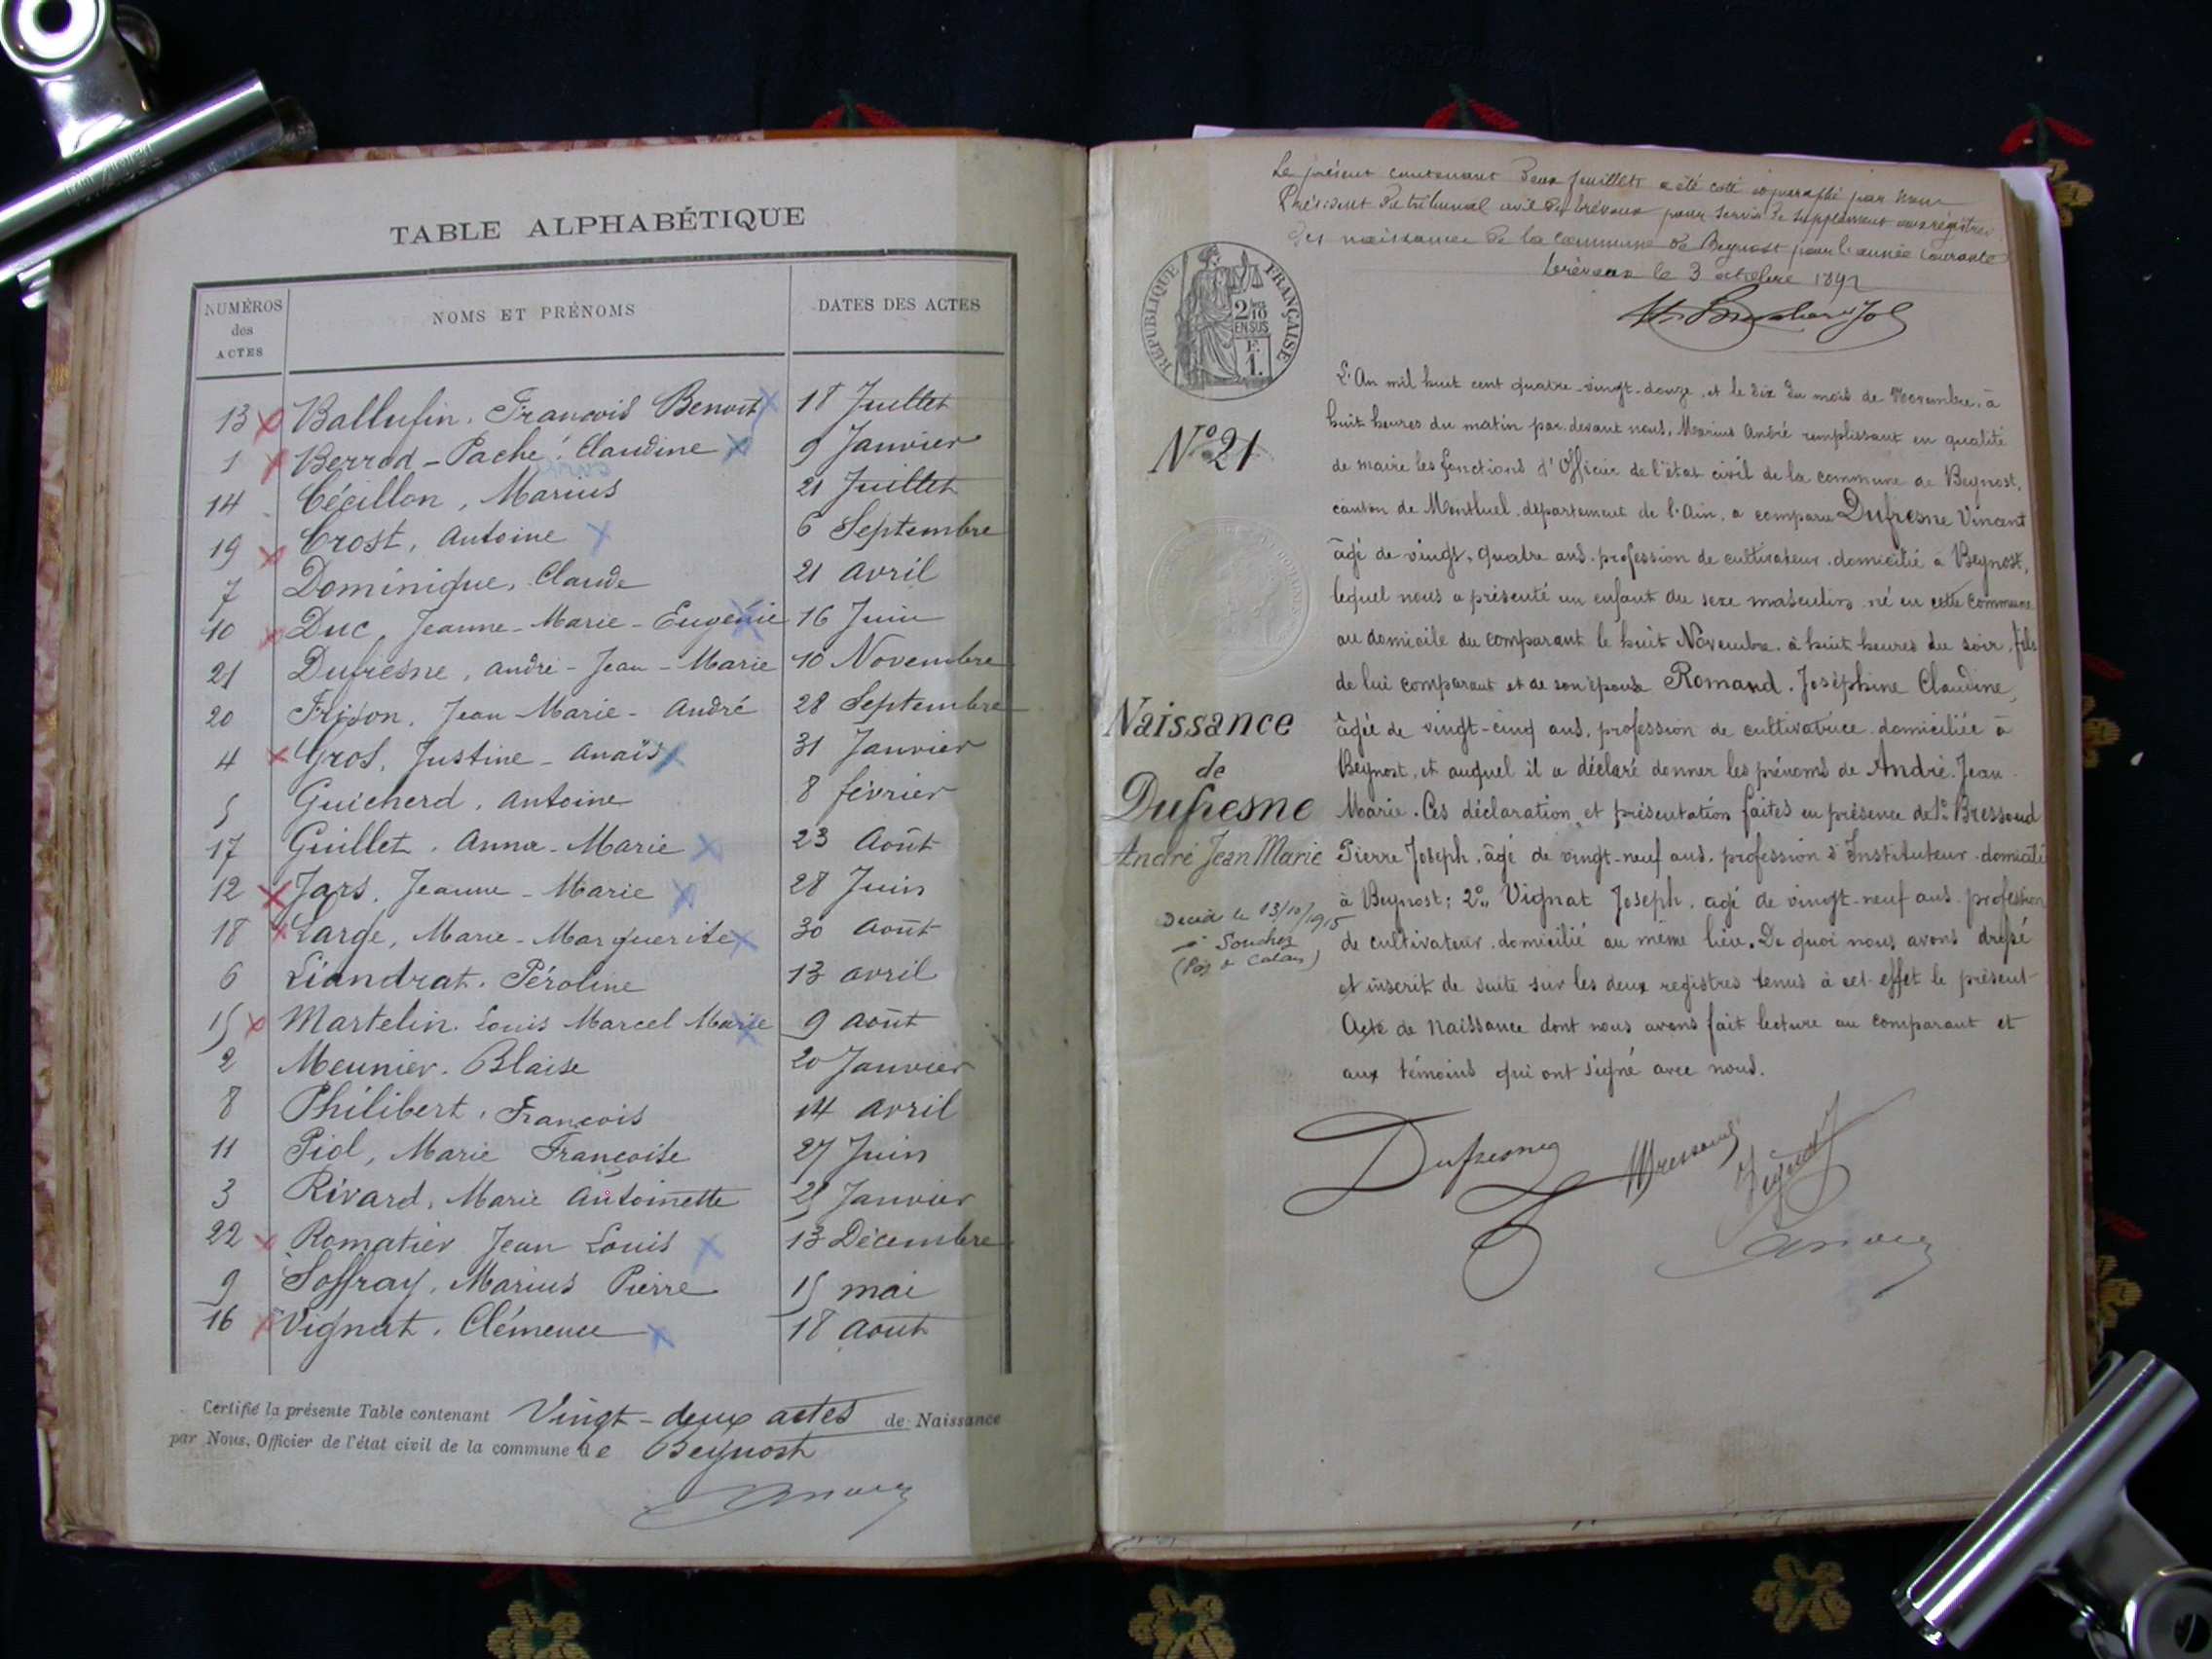 TABLE ALPHABÉTIQUE
NUMÉROS des ACTES
NOMS ET PRÉNOMS
DATES DES ACTES
13 Ballufin, François Benoit 18 Juillet
1 Berrod-Pache, Claudine 9 Janvier
14 Cécillon, Marius 21 Juillet
19 Crost, Antoine 6 Septembre
7 Dominique, Claude 21 Avril
10 Duc, Jeanne-Marie-Eugénie 16 Juin
21 Dufresne, André-Jean-Marie 10 Novembre
20 Frison, Jean-Marie-André 28 Septembre
4 Gros, Justine-Anaïs 31 Janvier
5 Guicherd, Antoine 8 février
17 Guillet, Anna-Marie 23 Août
12 Jars, Jeanne-Marie 28 Juin
18 Large, Marie-Marguerite 30 Août
6 Liandrat, Péroline 13 avril
15 Martelin, Louis Marcel Marie 9 Août
2 Meunier, Blaise 20 Janvier
8 Philibert, François 14 avril
11 Piol, Marie Françoise 27 Juin
3 Rivard, Marie Antoinette 25 Janvier
22 Romatier Jean Louis 13 Décembre
9 Soffray, Marius Pierre 15 mai
16 Vignat, Clémence 18 Août
Certifié la présente Table contenant Vingt-deux actes de Naissance
par Nous, Officier de l'état civil de la commune de Beynost
Le présent contenant deux feuillets a été coté et paraphé par nous
Président du tribunal civil de Trévoux pour servir de supplément aux registres
des naissances de la commune de Beynost pour l'année courante
Trévoux le 3 octobre 1892
RÉPUBLIQUE FRANÇAISE
2/10 EN SUS
F. 1.
N° 21
Naissance
de
Dufresne
André Jean Marie
Décédé le 13/10/1915
à Souchez
(Pas de Calais)
L'An mil huit cent quatre-vingt-douze, et le dix du mois de Novembre, à
huit heures du matin par devant nous, Marius André remplissant en qualité
de maire les fonctions d'Officier de l'état civil de la commune de Beynost,
canton de Montluel, département de l'Ain, a comparu Dufresne Vincent
âgé de vingt-quatre ans, profession de cultivateur, domicilié à Beynost,
lequel nous a présenté un enfant du sexe masculin né en cette commune
au domicile du comparant le huit Novembre, à huit heures du soir, fils
de lui comparant et de son épouse Romand, Joséphine Claudine,
âgée de vingt-cinq ans, profession de cultivatrice, domiciliée à
Beynost, et auquel il a déclaré donner les prénoms de André Jean
Marie. Ces déclaration et présentation faites en présence de 1° Bressoud
Pierre Joseph, âgé de vingt-neuf ans, profession d'Instituteur, domicilié
à Beynost; 2° Vignat Joseph, agé de vingt-neuf ans profession
de cultivateur, domicilié au même lieu. De quoi nous avons dressé
et inscrit de suite sur les deux registres tenus à cet effet le présent
Acte de Naissance dont nous avons fait lecture au comparant et
aux témoins qui ont signé avec nous.
Dufresne Bressoud Vignat J